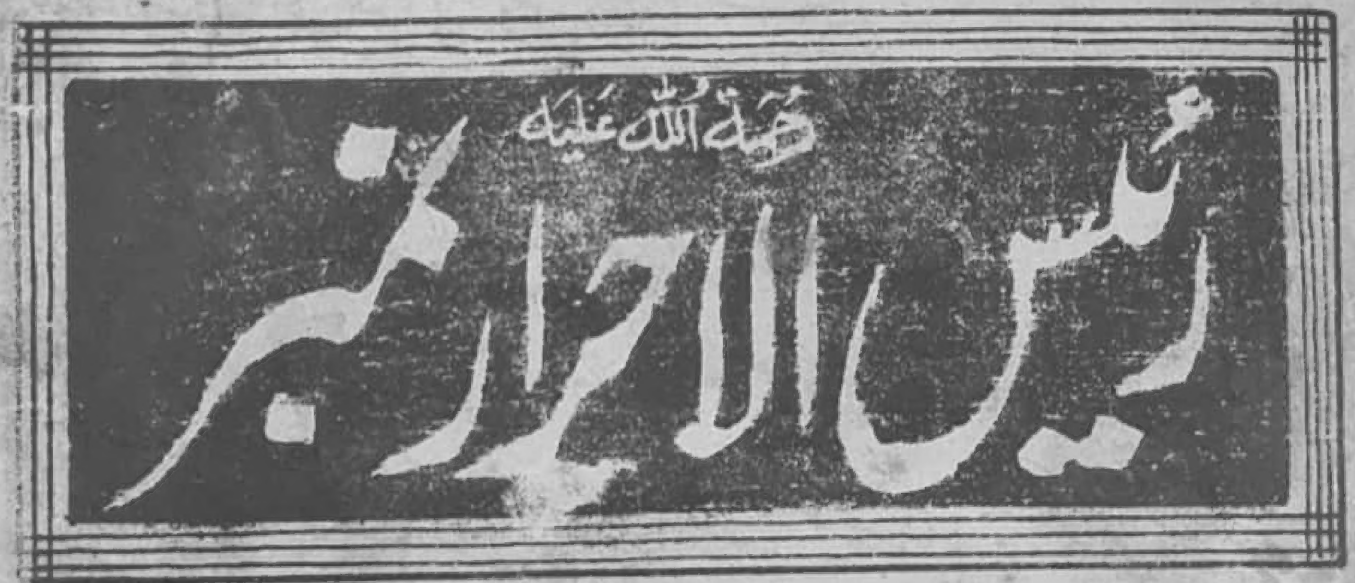 رحمۃ اللہ علیہ
رئیس الاحرار نمبر